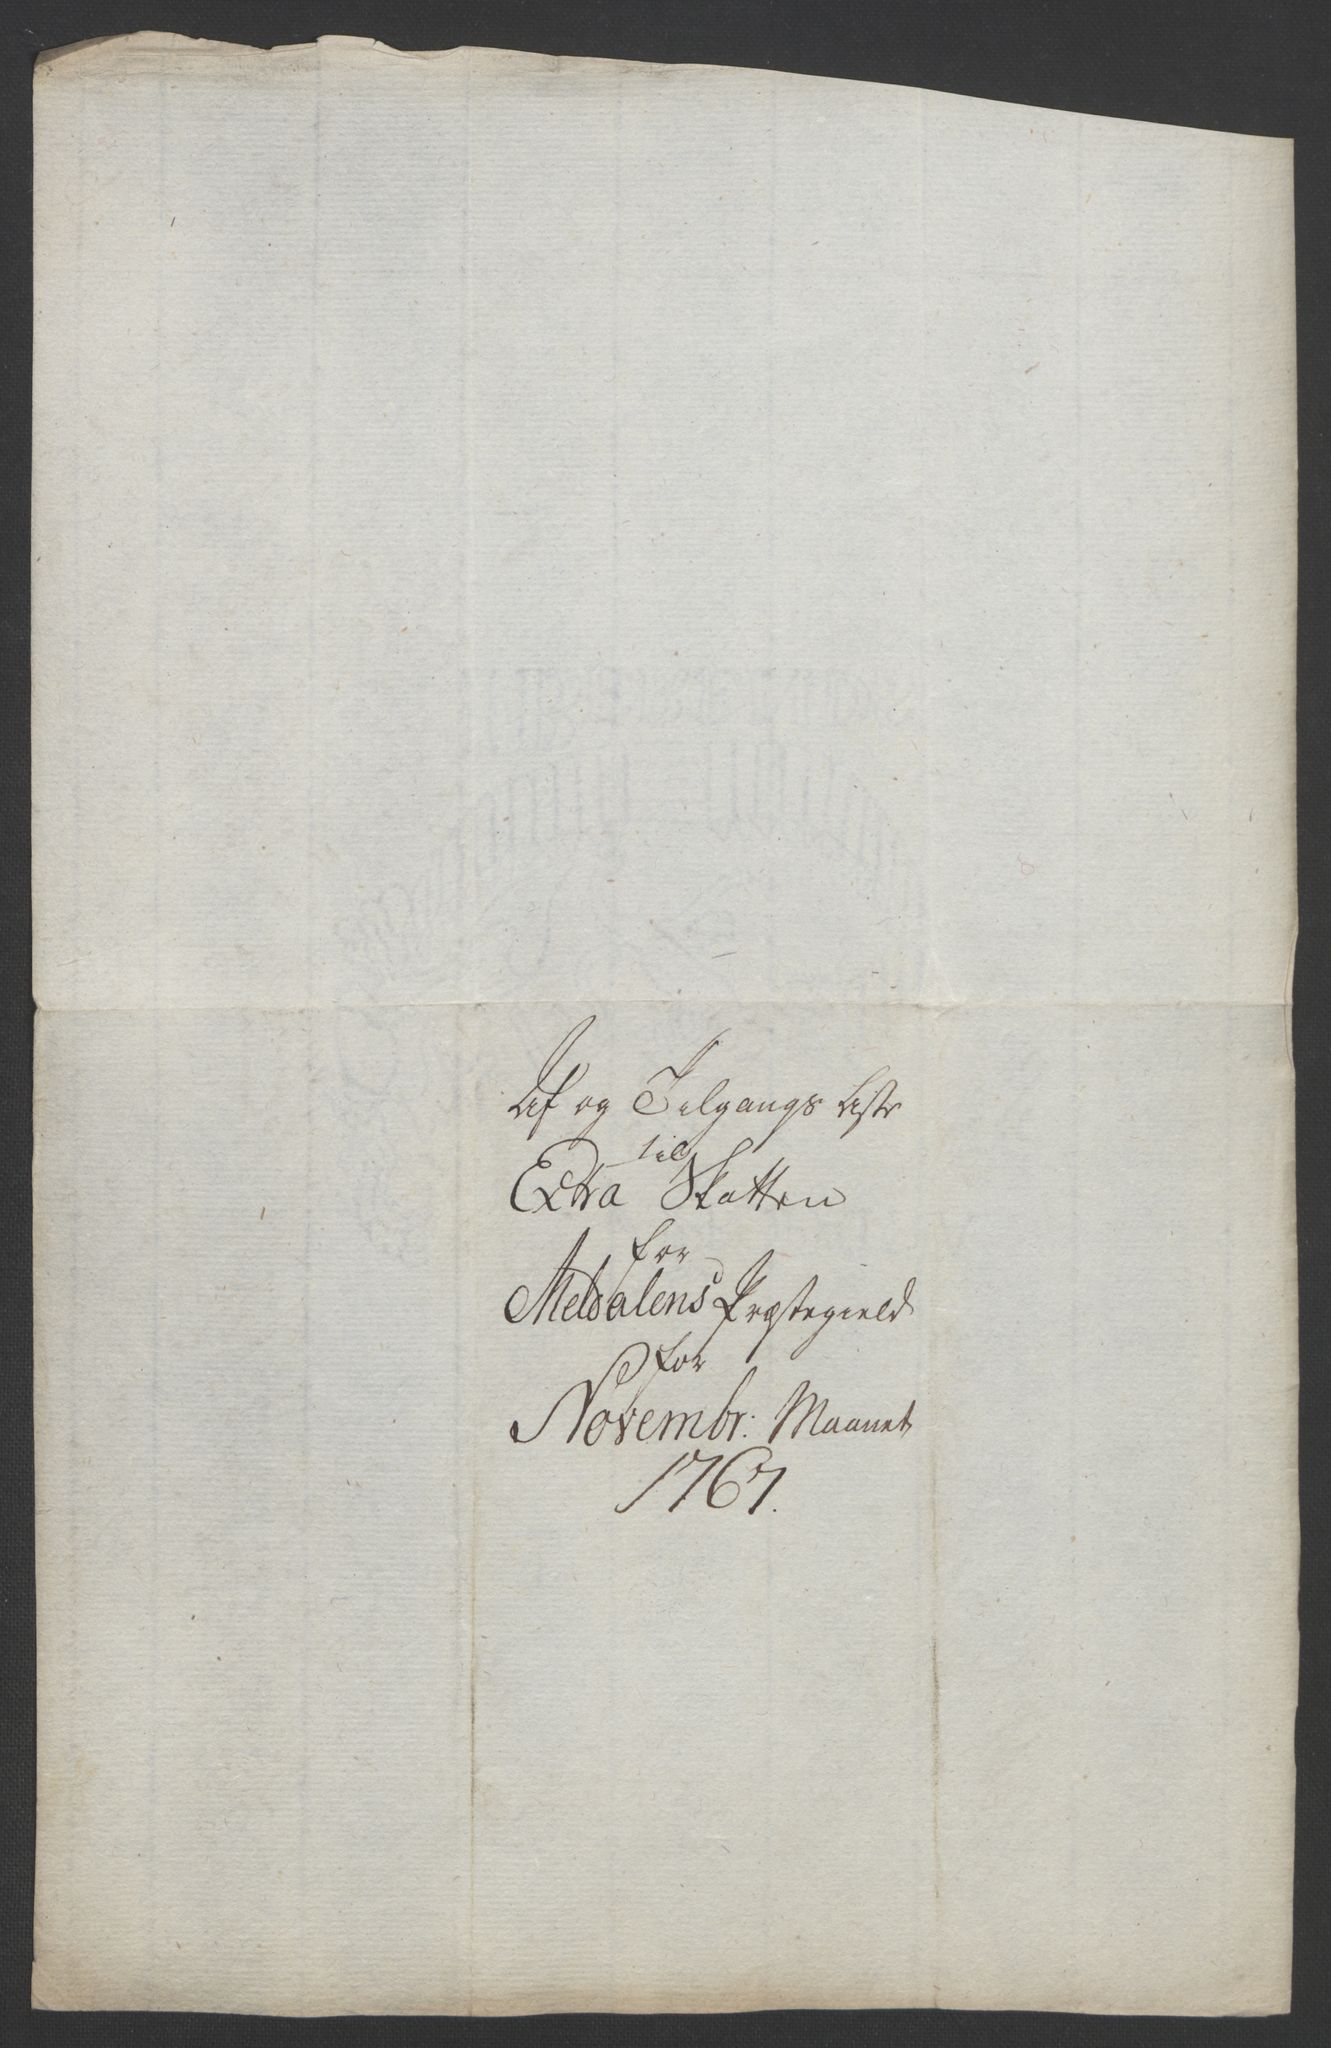 Af og Tilgangs Liste
til
Extra Skatten
for
Meldalens Præstegield
for
Novembr: Maanet
1767.